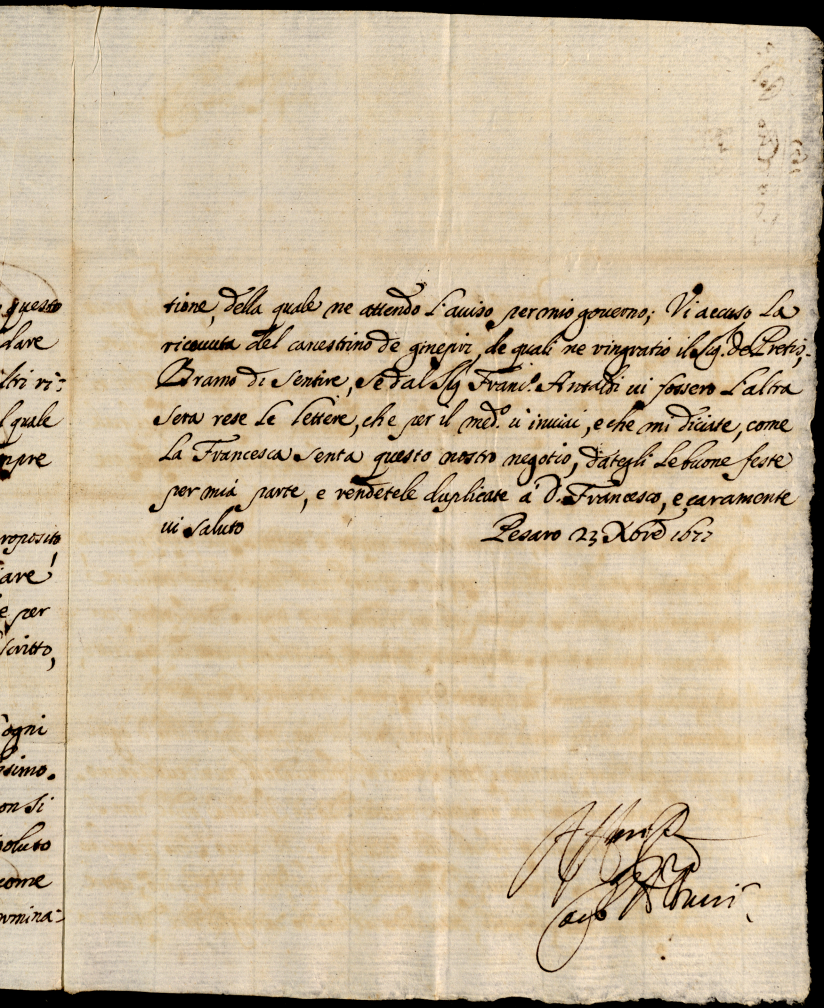 questo
dare
ltri ri:
l quale
mpre
roposito
iare
e per
scritto,
ogni
ssimo.
on si
soluto
come
rmina:
tione, della quale ne attendo l'auiso per mio gouerno; Vi accuso la
riceuuta del canestrino de ginepri, de quali ne ringratio il Sig. de Pretis,
Bramo di sentire, se dal Sig Franc.º Antaldi ui fossero l'altra
sera rese le lettere, che per il med.º ui inuiai, e che mi diciate, come
la Francesca senta questo nostro negotio, dategli le buone feste
per mia parte, e rendetele duplicate a D. Francesco, e caramente
ui saluto
Pesaro 23 Xbre 1677